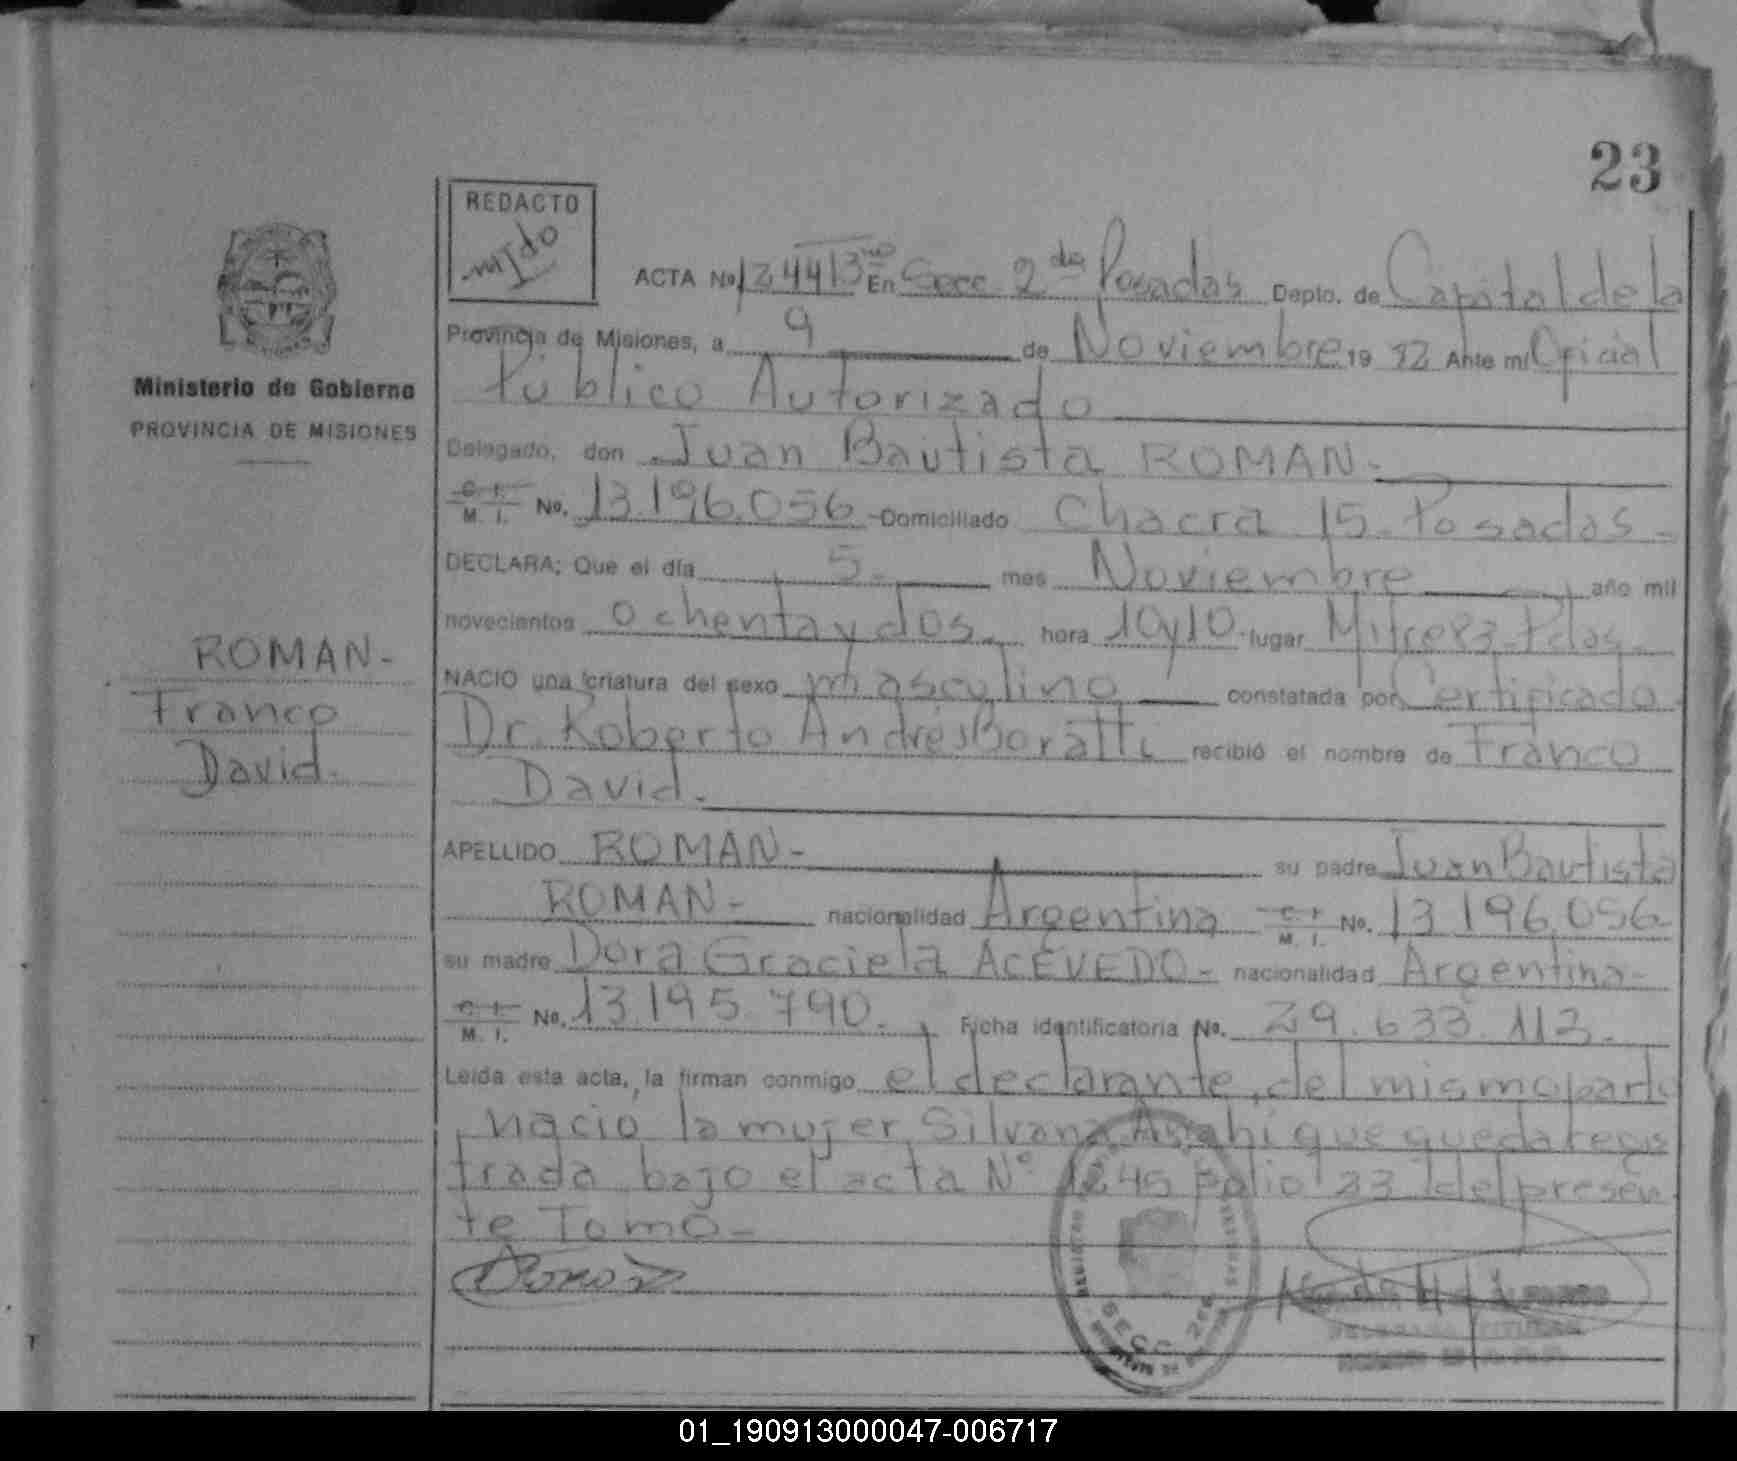 23
REDACTO
ACTA No. En Secc. 2 da Posadas Depto. de Capital de la
Provincia de Misiones, a 9 de Noviembre 19 82 Ante mi Oficial
Público Autorizado
Delegado, don Juan Bautista ROMAN.-
C. I. M. I. No. 13.196.056 -Domiciliado Chacra 15. Posadas.-
DECLARA: Que el día 5.- mes Noviembre año mil
novecientos ochenta y dos.- hora 10y10. lugar Mitre 83-Pdas.-
NACIO una criatura del sexo masculino constatada por Certificado
Dr. Roberto Andrés recibió el nombre de Franco
David.-
APELLIDO ROMAN.- su padre Juan Bautista
ROMAN- nacionalidad Argentina C. I. M. I. No. 13.196.056-
su madre Dora Graciela ACEVEDO.- nacionalidad Argentina-
C. I. M. I. No. 13.195.790. Ficha identificatoria No. 29.633.113.-
Leída esta acta, la firman conmigo el declarante, del mismo part
nacio la mujer Silvana que queda regis
trada bajo el acta N° 1245 Folio 23 del presen
te Tomo-
Ministerio de Gobierno
PROVINCIA DE MISIONES
ROMAN-
Franco
David.
SECC. 2da
01_190913000047-006717